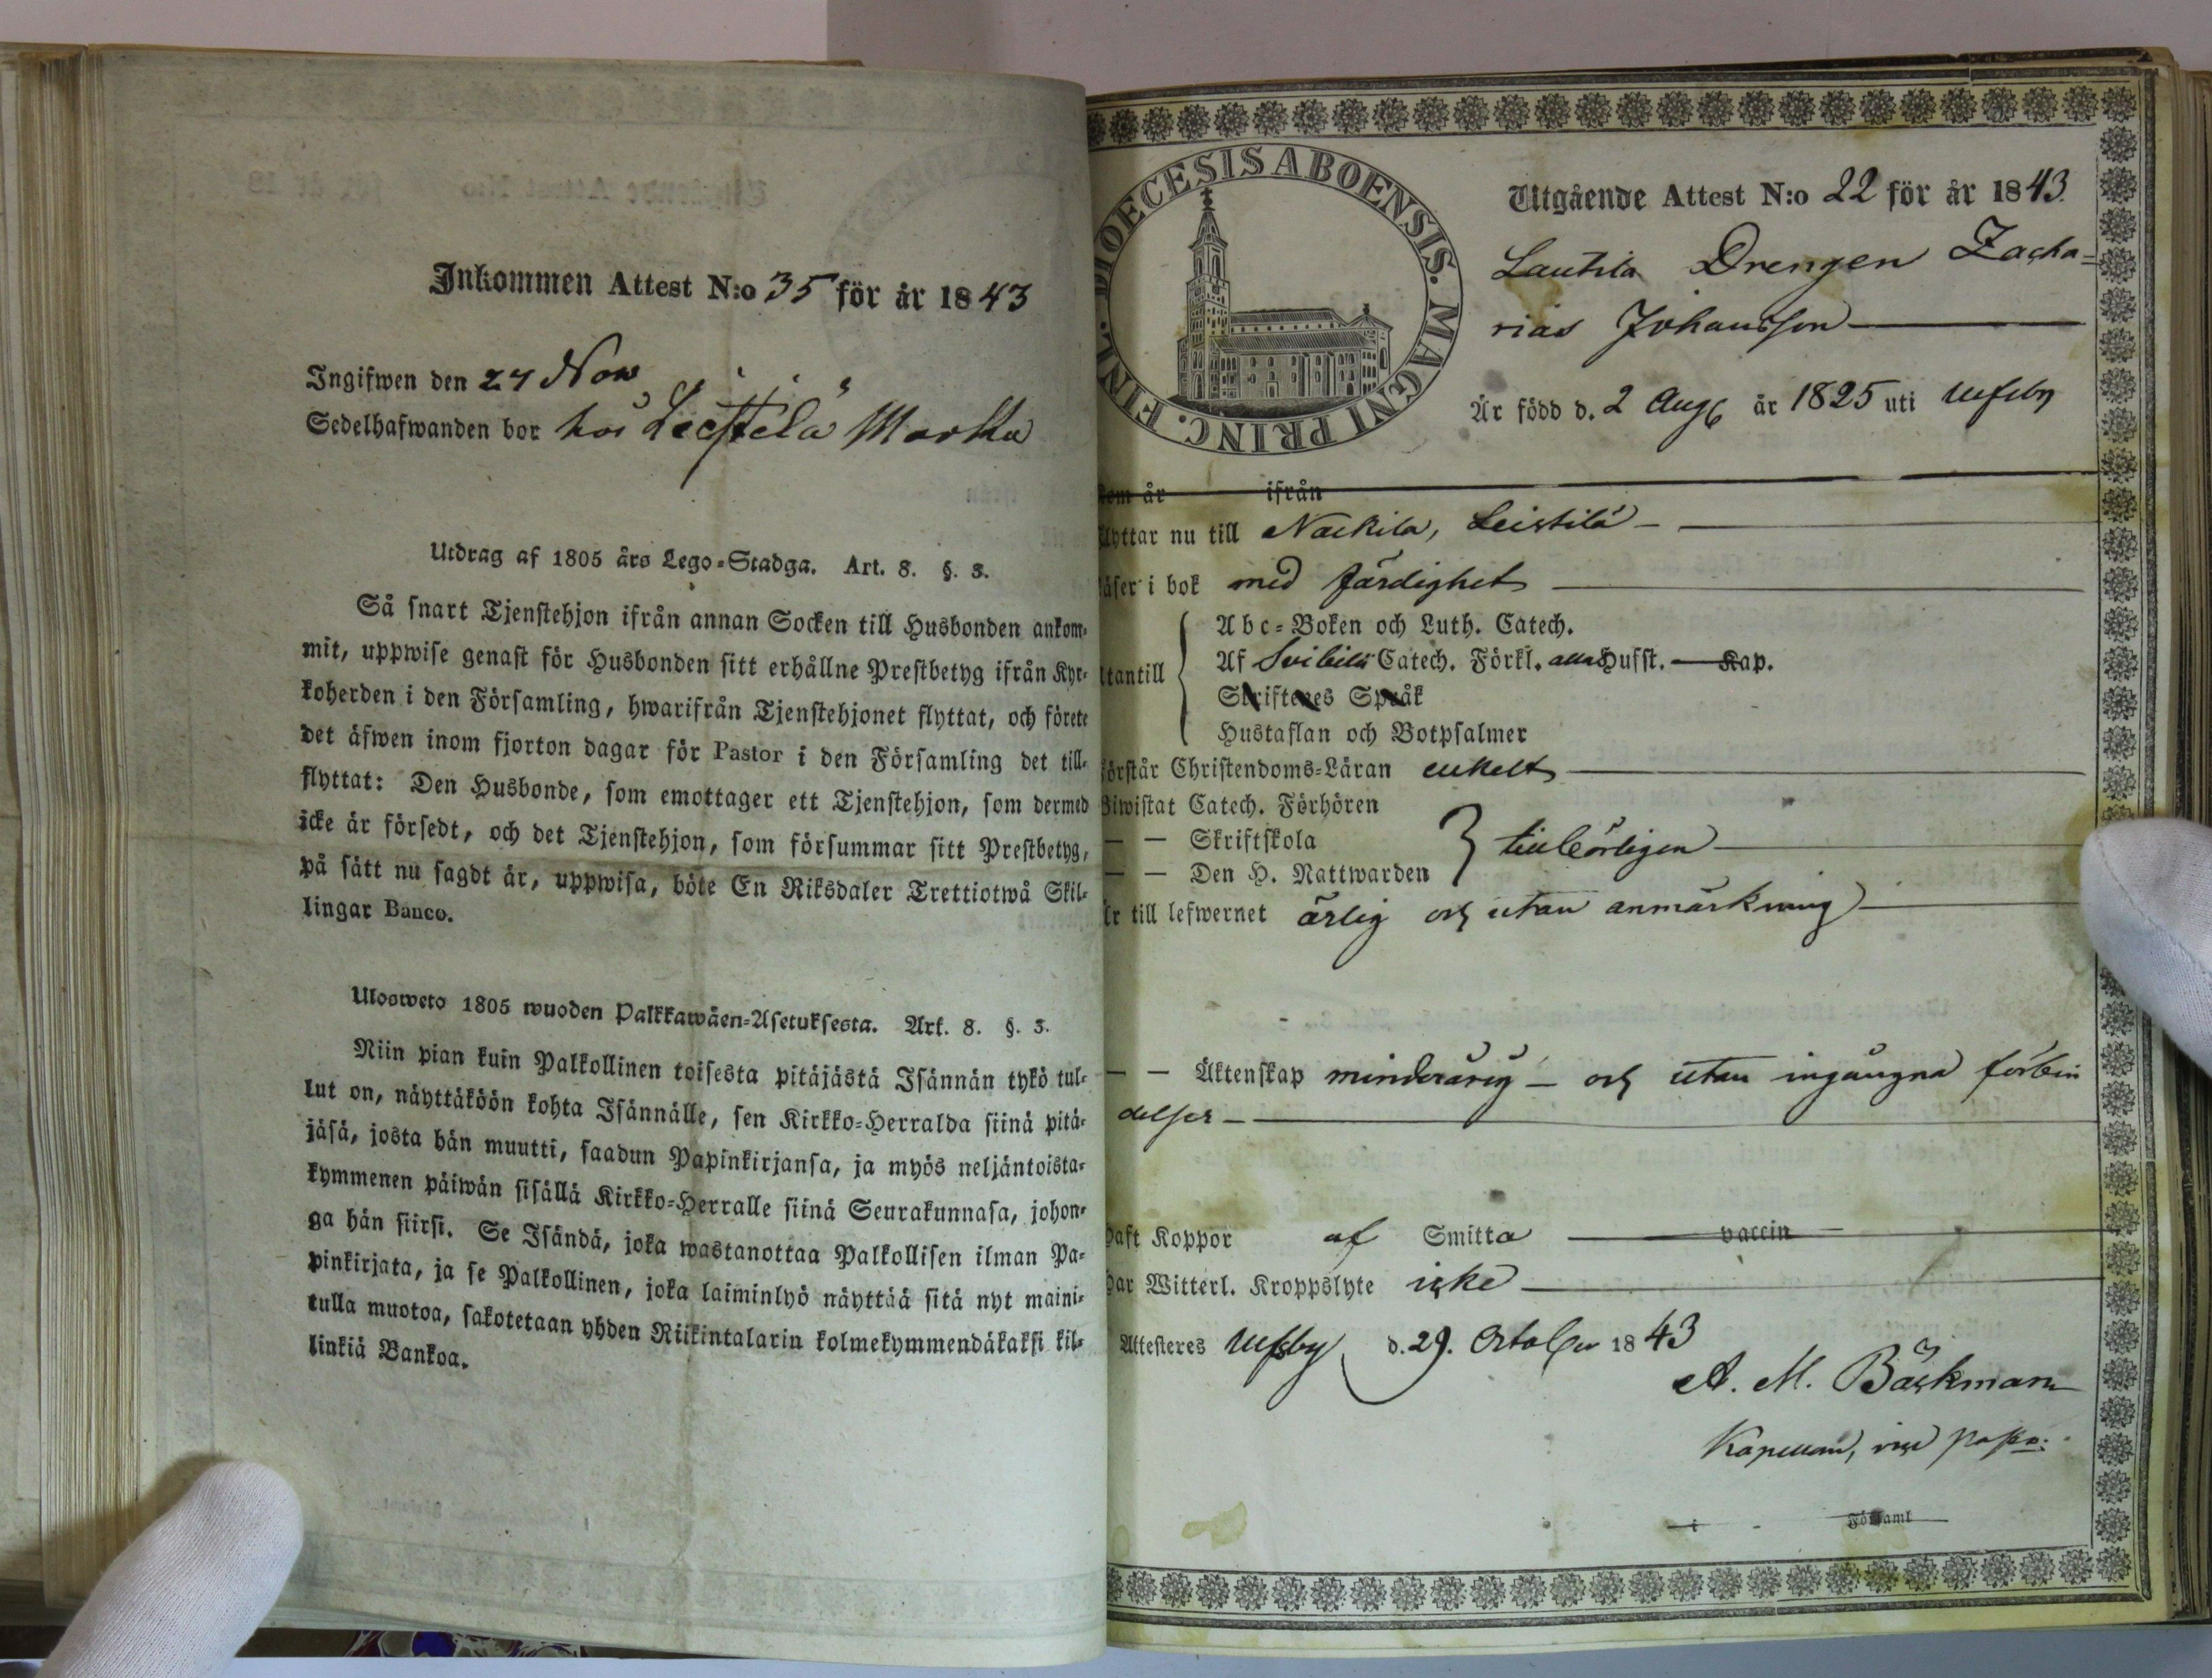 Inkommen Attest N:o 35 för år 1843
Ingifwen den 27 Nov
Sedelhafwanden bor hos Markku
Utdrag af 1805 års Lego-Stadga. Art. 8. §. 3.
Så snart Tjenstehjon ifrån annan Socken till Husbonden ankom-
mit, uppwise genast för Husbonden sitt erhållne Prestbetyg ifrån Kyr-
koherden i den Församling, hwarifrån Tjenstehjonet flyttat, och förete
det äfwen inom fjorton dagar för Pastor i den Församling det till-
flyttat: Den Husbonde, som emottager ett Tjenstehjon, som dermed
icke är försedt, och det Tjenstehjon, som försummar sitt Prestbetyg,
på sätt nu sagdt är, uppwisa, böte En Riksdaler Trettiotwå Skil-
lingar Banco.
Ulosweto 1805 wuoden Palkkawäen-Asetuksesta. Art. 8. §. 3.
Niin pian kuin Palkollinen toisesta pitäjästä Isännän tykö tul-
lut on, näyttäköön kohta Isännälle, sen Kirkko-Herralda siinä pitä-
jäsä, josta hän muutti, saadun Papinkirjansa, ja myös neljäntoista-
kymmenen päiwän sisällä Kirkko-Herralle siinä Seurakunnasa, johon-
ga hän siirsi. Se Isändä, joka wastanottaa Palkollisen ilman Pa-
pinkirjata, ja se Palkollinen, joka laiminlyö näyttää sitä nyt maini-
tulla muotoa, sakotetaan yhden Riikintalarin kolmekymmendäkaksi kil-
linkiä Bankoa.
DIOECESIS ABOENSIS. MAGNI PRINC. FINL.
Utgående Attest N:o 22 för år 1843.
Lautila Drengen Zacha-
rias Johansson
Är född d. 2 Aug år 1825 uti Ulfsby
som är ifrån
flyttar nu till Nackila, Leistilä
läser i bok med färdighet
Abc-Boken och Luth. Catech.
utantill Af Svibilii Catech. Förkl. alla Husst. Kap.
Skriftenes Språk
Hustaflan och Botpsalmer
förstår Christendoms-Läran enkelt
Biwistat Catech. Förhören
— — Skriftskola
— — Den H. Nattwarden } tillbörligen
Är till lefwernet ärlig och utan anmärkning
— — Äktenskap minderårig – och utan ingångna förbin
delser
haft Koppor af Smitta vaccin
har Witterl. Kroppslyte icke
Attesteres Ulfsby d. 29. October 1843
A. M. Bäckman
Kapellan, vice past:
i Församl